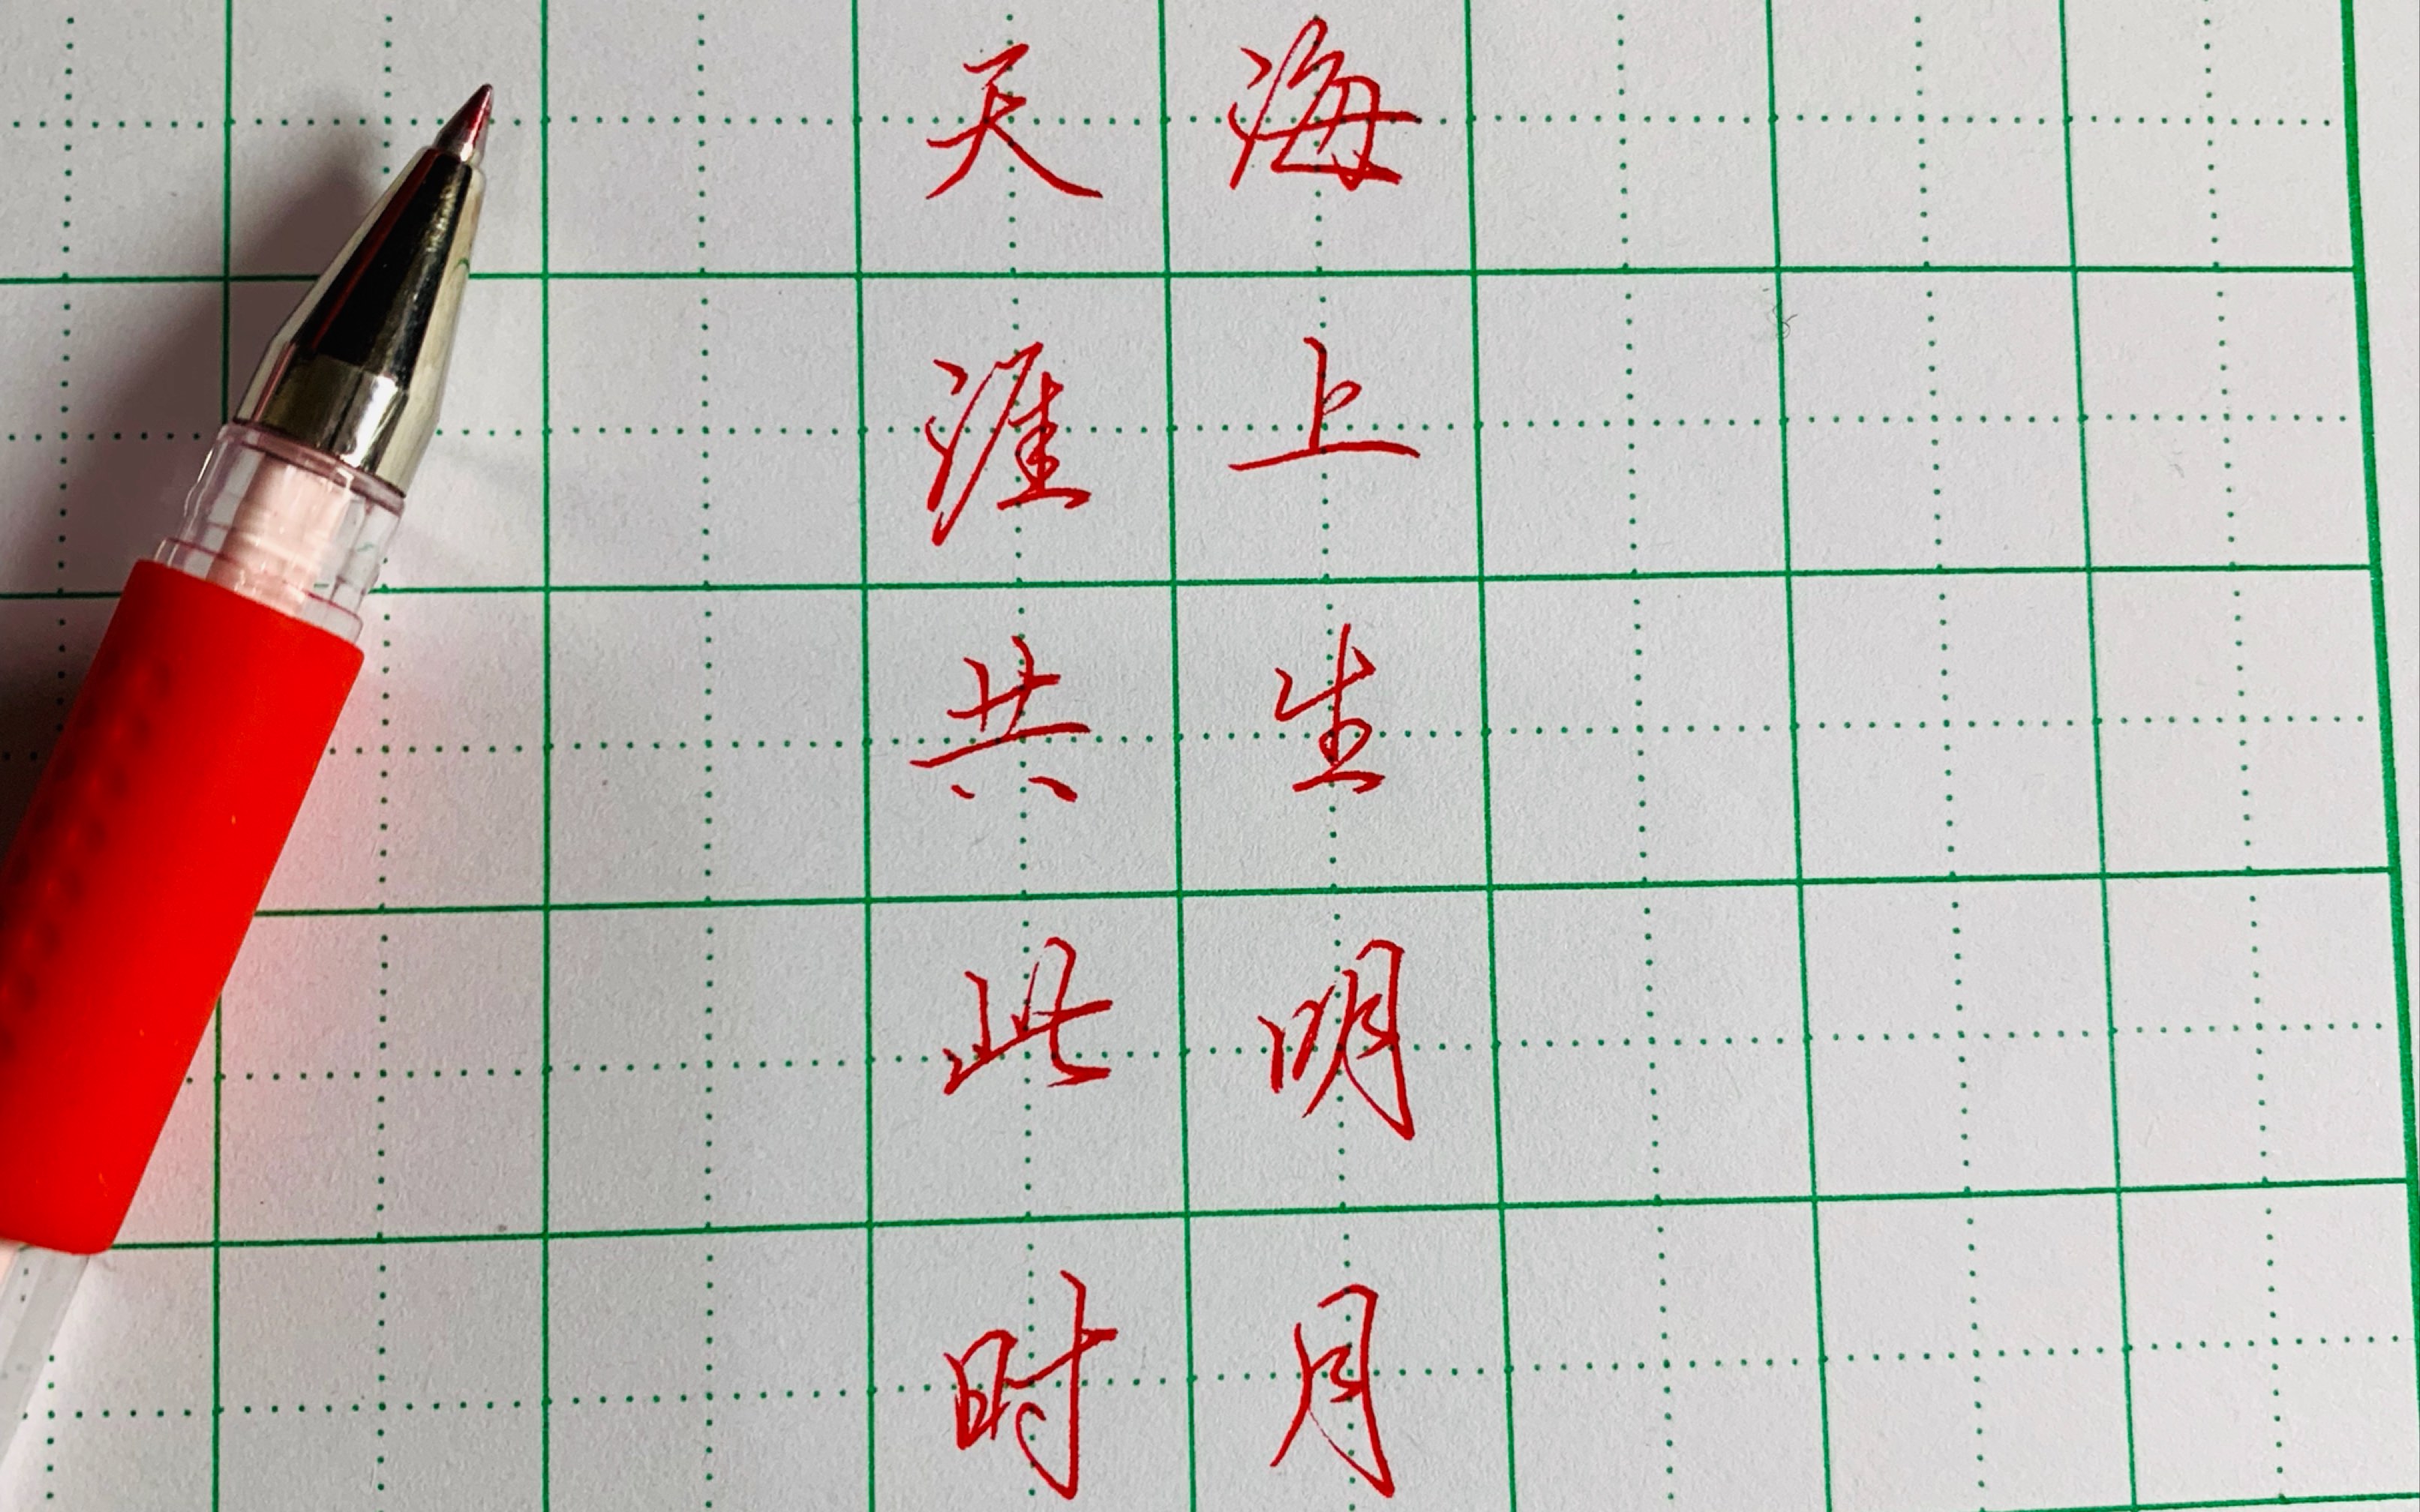 海上生明月
天涯共此时